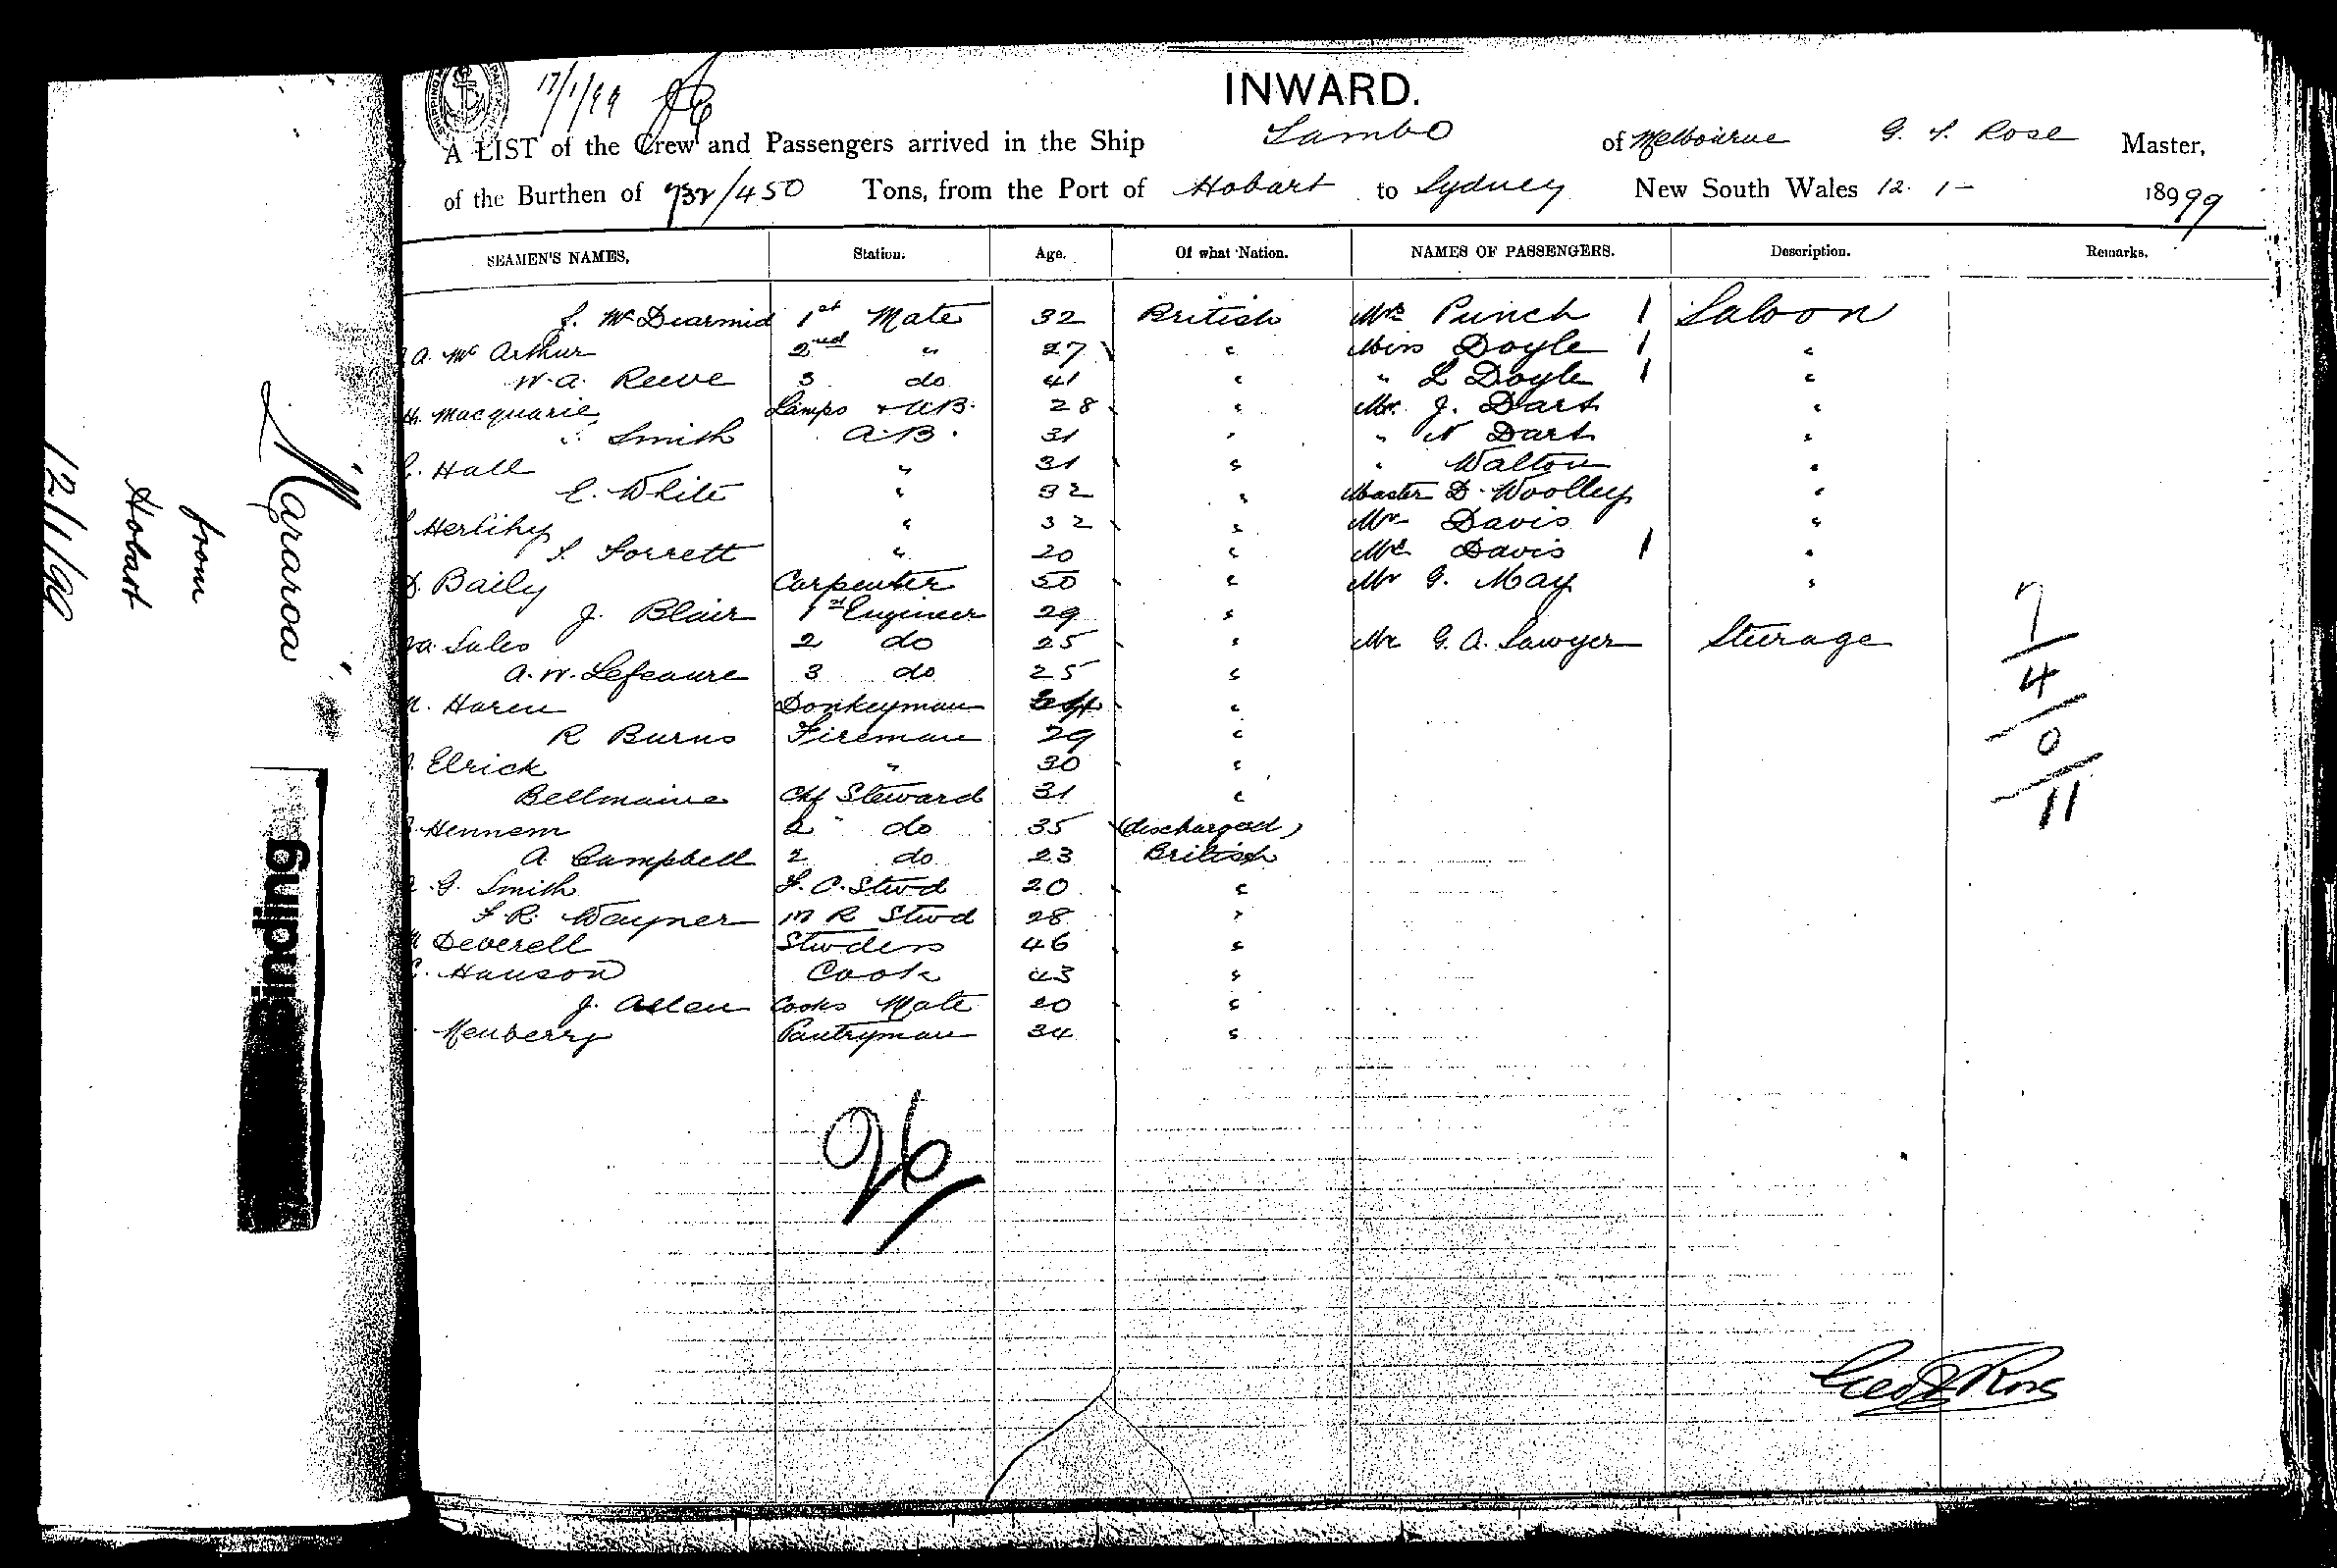 "Mararoa"
from
Hobart
12/1/99
Binding
17/1/99
INWARD.
A LIST of the Crew and Passengers arrived in the Ship Sambo of Melbourne G. S. Rose Master,
of the Burthen of 732/450 Tons, from the Port of Hobart to Sydney New South Wales 12. 1 - 18999
SEAMEN'S NAMES, Station. Age. Of what Nation. NAMES OF PASSENGERS. Description. Remarks.
McDearmid 1st Mate 32 British Mrs Punch 1 Saloon
A. McArthur 2nd " 27 " Miss Doyle 1 "
W. A. Reeve 3 do 41 " " L Doyle 1 "
H. Macquarie Lamps & AB. 28 " Mr. J. Dart "
Smith A.B. 31 " " N Dart "
Hall " 31 " " Walton "
E. White " 32 " Master D. Woolley "
Herlihy " 32 " Mr Davis "
S. Sorrett " 20 " Mrs Davis 1 "
D. Baily Carpenter 50 " Mr G. May "
J. Blair 1st Engineer 29 "
Sales 2 do 25 " Mr G. A. Sawyer Steerage
A. W. Lefeaure 3 do 25 "
Haren Donkeyman "
R Burns Fireman 29 "
Elrick " 30 "
Bellmaine Chf Steward 31 "
Hennem 2 " do 35 (discharged)
A Campbell 2 do 23 British
G. Smith F.C. Stwd 20 "
F. R. Wayner M R Stwd 28 "
Deverell Stwdess 46 "
Hanson Cook 43 "
J. Allen Cooks Mate 20 "
Newberry Pantryman 34 "
7/4/0/11
26/
Geo S Ross